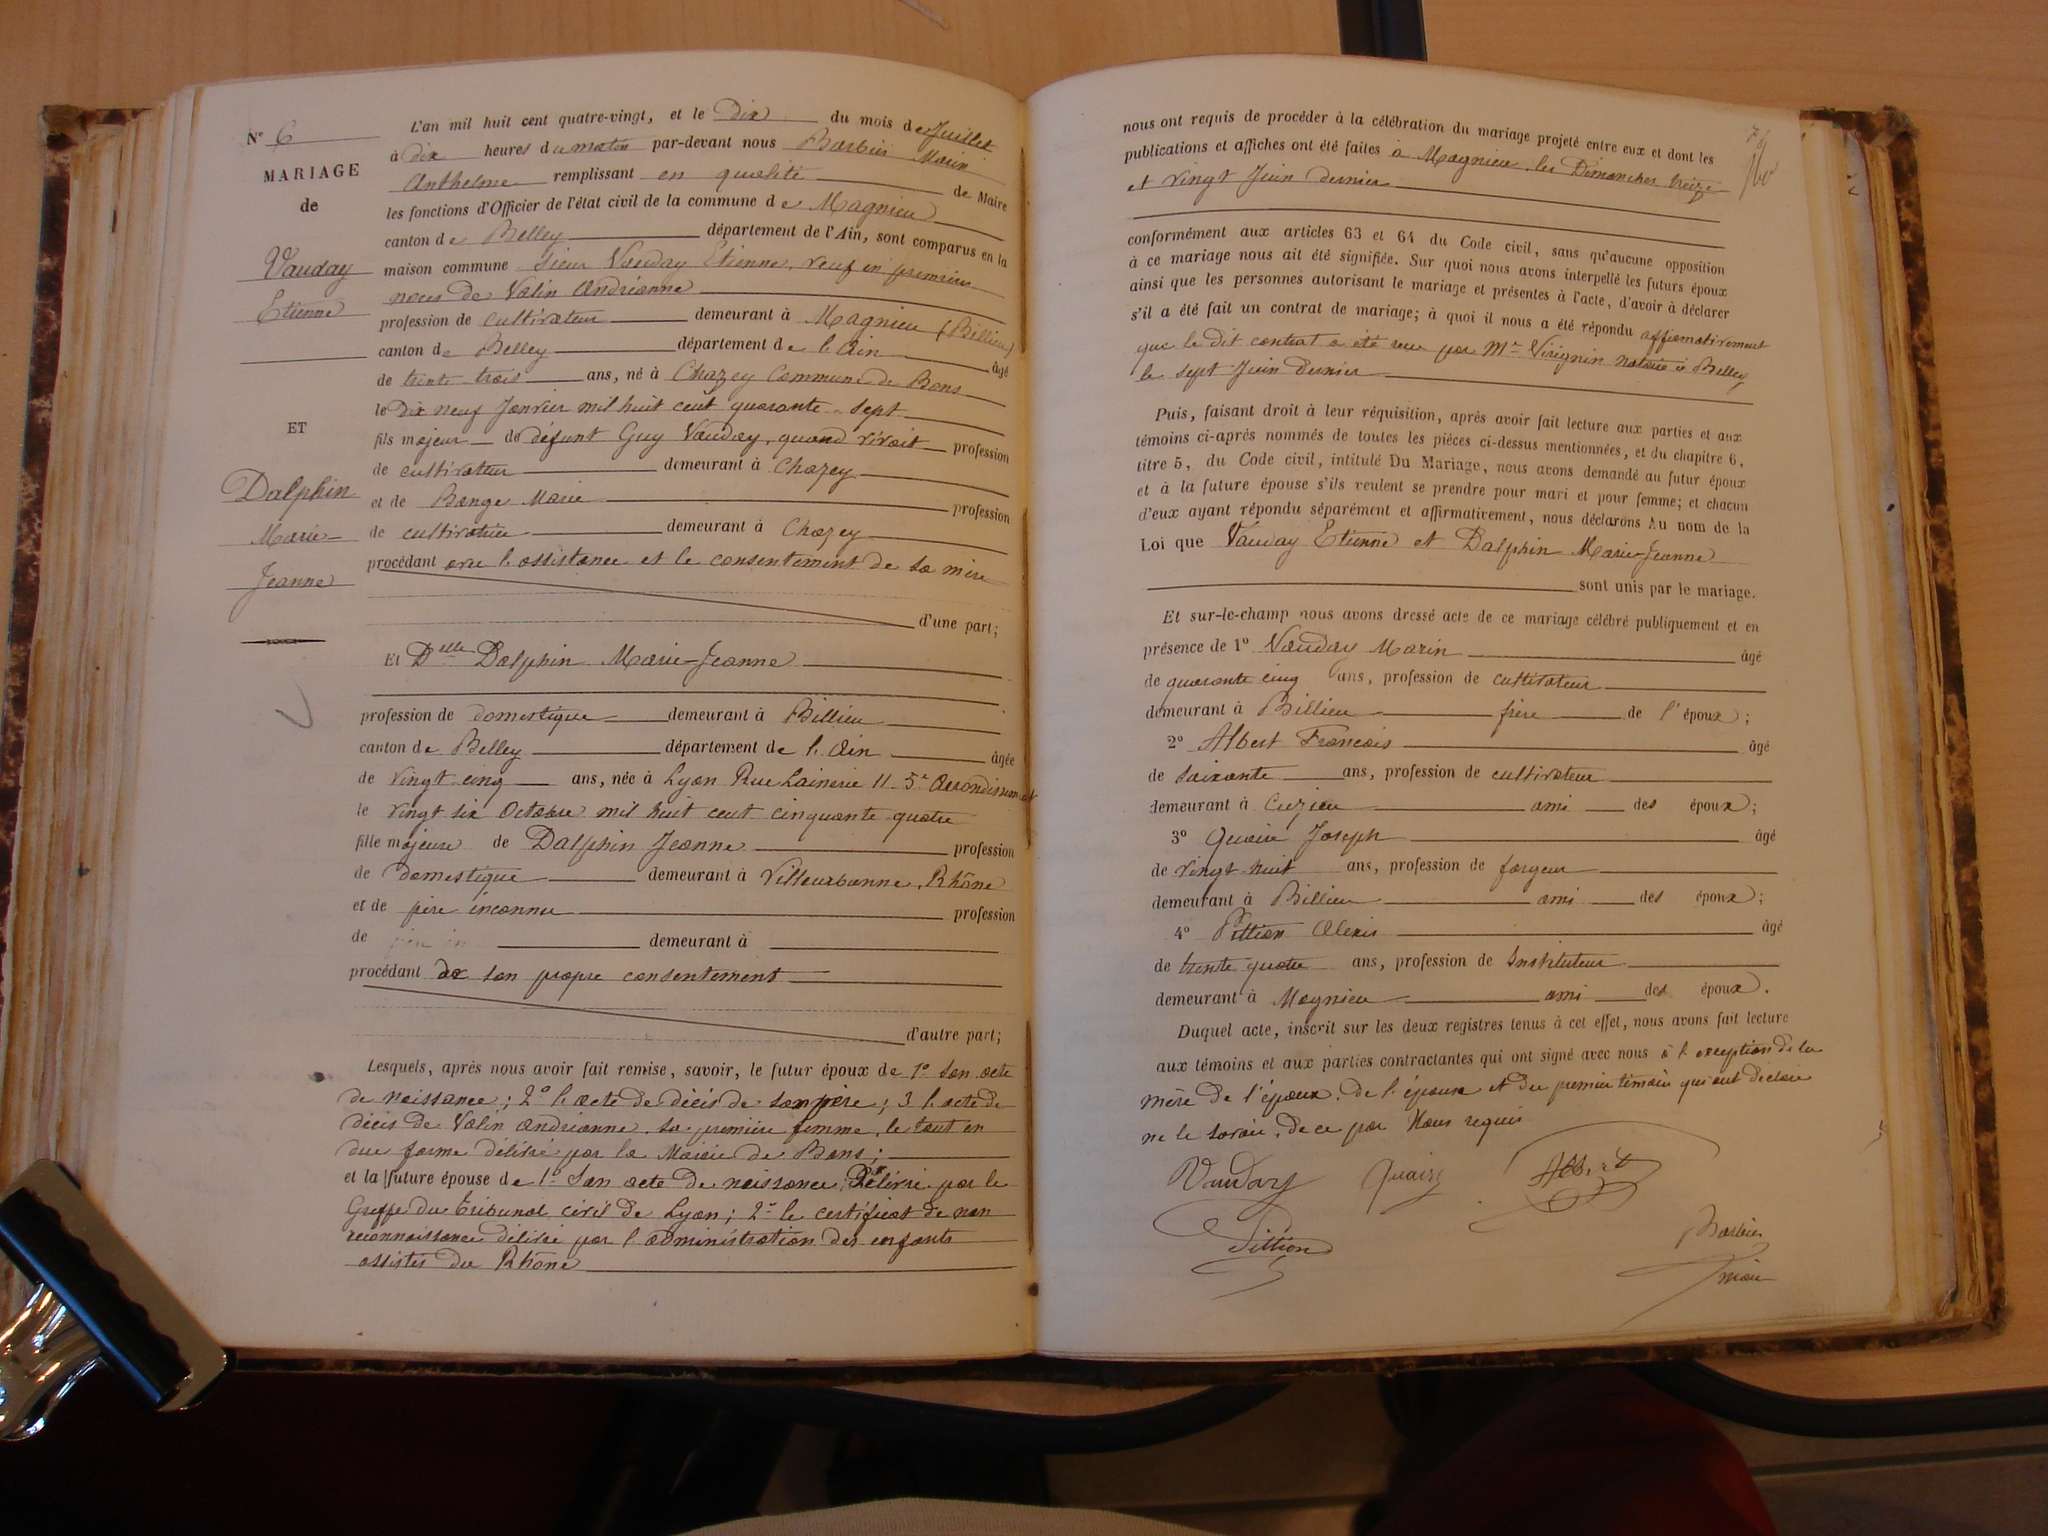 N° 6
MARIAGE
de
Vauday
Etienne
ET
Dalphin
Marie
Jeanne
L'an mil huit cent quatre-vingt, et le Dix du mois de Juillet
à dix heures du matin par-devant nous Barbier Marin
Anthelme remplissant en qualité de Maire
les fonctions d'Officier de l'état civil de la commune de Magnieu
canton de Belley département de l'Ain, sont comparus en la
maison commune Sieur Vauday Etienne, veuf en premières
noces de Valin Andréanne
profession de cultivateur demeurant à Magnieu (Billieu)
canton de Belley département de l'Ain âgé
de trente trois ans, né à Chazey Commune de Bons
le Dix neuf Janvier mil huit cent quarante-sept
fils majeur de défunt Guy Vauday, quand vivait profession
de cultivateur demeurant à Chazey
et de Bange Marie profession
de cultivatrice demeurant à Chazey
procédant avec l'assistance et le consentement de sa mère
d'une part;
Et Delle Dalphin Marie-Jeanne
profession de domestique demeurant à Billieu
canton de Belley département de l'Ain âgée
de vingt-cinq ans, née à Lyon Rue Lainerie 11-5e Arrondissement
le vingt six Octobre mil huit cent cinquante quatre
fille majeure de Dalphin Jeanne profession
de domestique demeurant à Villeurbanne, Rhône
et de père inconnu profession
de demeurant à
procédant de son propre consentement
d'autre part;
Lesquels, après nous avoir fait remise, savoir, le futur époux de 1° Son acte
de naissance; 2° l'acte de décès de son père; 3 l'acte de
décès de Valin Andrianne, sa première femme, le tout en
due forme délivré par la Mairie de Bons;
et la future épouse de 1° Son acte de naissance Délivré par le
Greffe du tribunal civil de Lyon; 2° le certificat de non
reconnaissance délivré par l'administration des enfants
assistés du Rhône
nous ont requis de procéder à la célébration du mariage projeté entre eux et dont les
publications et affiches ont été faites à Magnieu les Dimanches treize
et vingt Juin dernier
conformément aux articles 63 et 64 du Code civil, sans qu'aucune opposition
à ce mariage nous ait été signifiée. Sur quoi nous avons interpellé les futurs époux
ainsi que les personnes autorisant le mariage et présentes à l'acte, d'avoir à déclarer
s'il a été fait un contrat de mariage; à quoi il nous a été répondu affirmativement
que le dit contrat a été reçu par Mr Virignin notaire à Belley
le sept Juin dernier
Puis, faisant droit à leur réquisition, après avoir fait lecture aux parties et aux
témoins ci-après nommés de toutes les pièces ci-dessus mentionnées, et du chapitre 6,
titre 5, du Code civil, intitulé Du Mariage, nous avons demandé au futur époux
et à la future épouse s'ils veulent se prendre pour mari et pour femme; et chacun
d'eux ayant répondu séparément et affirmativement, nous déclarons Au nom de la
Loi que Vauday Etienne et Dalphin Marie-Jeanne
sont unis par le mariage.
Et sur-le-champ nous avons dressé acte de ce mariage célébré publiquement et en
présence de 1° Vauday Marin âgé
de quarante cinq ans, profession de cultivateur
demeurant à Billieu frère de l'époux;
2° Albert François âgé
de soixante ans, profession de cultivateur
demeurant à Cuzieu ami des époux;
3° Quaire Joseph âgé
de vingt huit ans, profession de forgeur
demeurant à Billieu ami des époux;
4° Pittion Alexis âgé
de trente quatre ans, profession de Instituteur
demeurant à Magnieu ami des époux.
Duquel acte, inscrit sur les deux registres tenus à cet effet, nous avons fait lecture
aux témoins et aux parties contractantes qui ont signé avec nous à l'exception de la
mère de l'époux, de l'épouse et du premier témoin qui ont déclaré
ne le savoir, de ce par Nous requis
Vauday Quaire Albert
Pittion
Barbier
maire